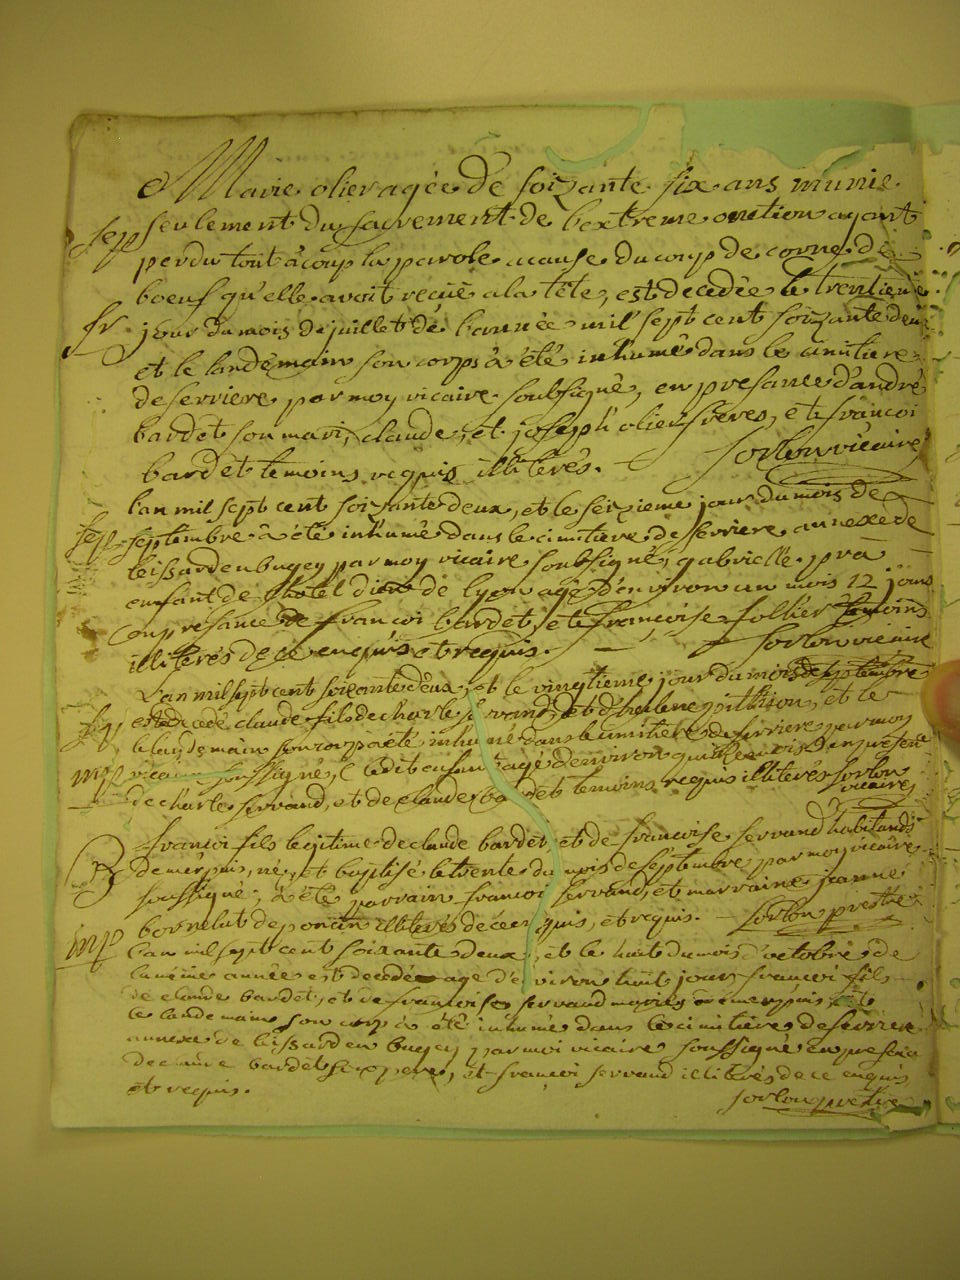 Marie olier agée de soixante six ans munie
sep seulement du sacrement de l'extreme onction ayant
perdu tout à coup la parole a cause du coup de corne de
boeuf qu'elle avoit reçüe a la tête, est decedée le trentieme
jour du mois de juillet de l'année mil sept cent soixante deux
et le landemain son corps à été inhumé dans le cimitiere
de serriere par moy vicaire soubsigné, en presance d'andré
bardet son mari, claude, et joseph olier freres, et françoi
bardet temoins requis illiterés. sorlon vicaire
l'an mil sept cent soixante deux, et le seizieme jour du mois de
sep septembre à été inhumé dans le cimitiere de serriere annexe de
leissard en bugey par moy vicaire soubsigné, gabrielle
enfant de l'hôtel dieu de lyon agé d'environ un mois 12 jours
en presance de françoi bardet, et françoise follier temoins
illiterés de ce enquis et requis. sorlon vicaire
L'an mil sept cent soixante deux, et le vingtieme jour du mois de septembre
sep est decedé claude fils de charle servand, et d'helene et le
landemain son corps à été inhumé dans le cimitiere de serriere par moy
vicaire soussigné, ledit enfant agé d'environ en presence
de charle servand, et de claude bardet temoins requis illiterés sorlon
vicaire
françoi fils legitime de claude bardet, et de françoise servand habitands
B de merpuis, né, et baptisé le trente du mois de septembre par moy vicaire
soussigné, à été parrain françoi servand, et marraine jeanne
de poncin illiterés de ce enquis, et requis. sorlon prestre
l'an mil sept cent soixante deux, et le huit du mois d'octobre de
la même année est decedé age d'environ huit jours françoi fils
de claude bardet, et de françoise servand mariés de merpuis et
le landemain son corp à été inhumé dans le cimitiere de serriere
annexe de leissard en bugey par moi vicaire soussigné en presence
de claude bardet son pere, et françoi servand illiterés de ce enquis
et requis. sorlon prestre